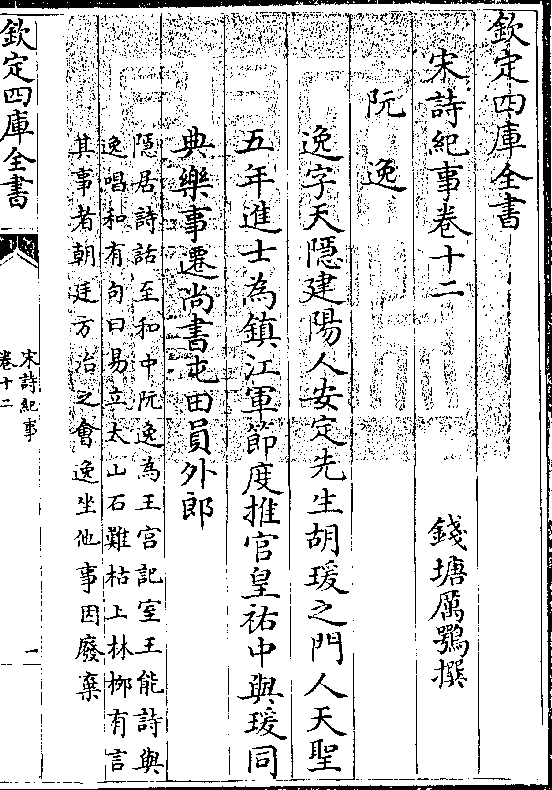 欽定四庫全書
宋詩紀事卷十二
錢塘厲鶚撰
阮逸
逸字天隱建陽人安定先生胡瑗之門人天聖
五年進士為鎮江軍節度推官皇祐中與瑗同
典樂事遷尚書屯田員外郎
隱居詩話至和中阮逸為王宮記室王能詩與
逸唱和有句曰易立太山石難枯上林桺有言
其事者朝廷方治之會逸坐他事因廢棄
欽定四庫全書
宋詩紀事
卷十二
一